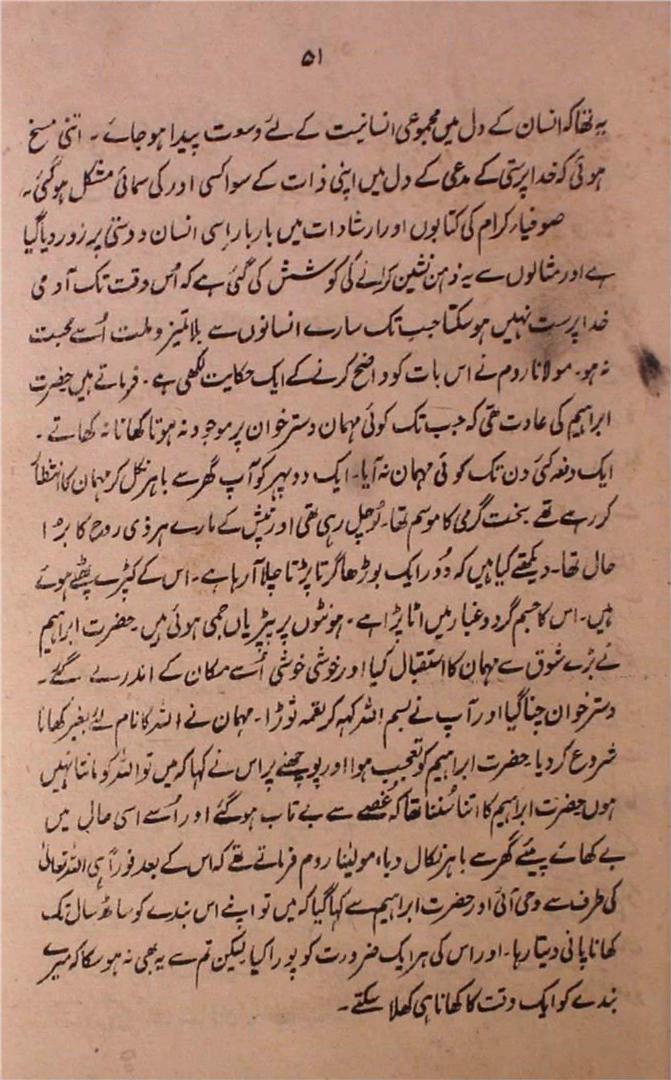 ۵۱
یہ تھا کہ انسان کے دل میں مجموعی انسانیت کے لئے وسعت پیدا ہو جائے ۔ اتنی مسخ
ہوئی کہ خدا پرستی کے مدعی کے دل میں اپنی ذات کے سوا کسی اور کی سمائی مشکل ہو گئی ۔
صوفیاء کرام کی کتابوں اور ارشادات میں بار بار اسی انسان دوستی پر زور دیا گیا
ہے اور مثالوں سے یہ ذہن نشین کرانے کی کوشش کی گئی ہے کہ اُس وقت تک آدمی
خدا پرست نہیں ہو سکتا جب تک سارے انسانوں سے بلا تمیز و ملت اُسے محبت
نہ ہو ۔ مولانا روم نے اس بات کو واضح کرنے کے ایک حکایت لکھی ہے ۔ فرماتے ہیں حضرت
ابراہیم کی عادت تھی کہ جب تک کوئی مہمان دستر خوان پر موجود نہ ہوتا کھانا نہ کھاتے ۔
ایک دفعہ کئی دن تک کوئی مہمان نہ آیا ۔ ایک دوپہر کو آپ گھر سے باہر نکل کر مہمان کا انتظار
کر رہے تھے سخت گرمی کا موسم تھا ۔ لُو چل رہی تھی اور تپش کے مارے ہر ذی روح کا بُرا
حال تھا ۔ دیکھتے کیا ہیں کہ دُور ایک بوڑھا گرتا پڑتا چلا آ رہا ہے ۔ اس کے کپڑے پھٹے ہوئے
ہیں ۔ اس کا جسم گرد و غبار میں اٹا پڑا ہے ۔ ہونٹوں پر پپڑیاں جمی ہوئی ہیں ۔ حضرت ابراہیم
نے بڑے شوق سے مہمان کا استقبال کیا اور خوشی خوشی اُسے مکان کے اندر لے گئے ۔
دستر خوان چنا گیا اور آپ نے بسم اللہ کہہ کر لقمہ توڑا ۔ مہمان نے اللہ کا نام لئے بغیر کھانا
شروع کر دیا ۔ حضرت ابراہیم کو تعجب ہوا اور پوچھنے پر اس نے کہا کہ میں تو اللہ کو مانتا نہیں
ہوں حضرت ابراہیم کا اتنا سُننا تھا کہ غصے سے بے تاب ہو گئے اور اُسے اسی حال میں
بے کھائے پیئے گھر سے باہر نکال دیا ، مولینا روم فرماتے تھے کہ اس کے بعد فوراً ہی اللہ تعالیٰ
کی طرف سے وحی آئی اور حضرت ابراہیم سے کہا گیا کہ میں تو اپنے اس بندے کو ساٹھ سال تک
کھانا پانی دیتا رہا ۔ اور اس کی ہر ایک ضرورت کو پورا کیا لیکن تم سے یہ بھی نہ ہو سکا کہ میرے
بندے کو ایک وقت کا کھانا ہی کھلا سکتے ۔